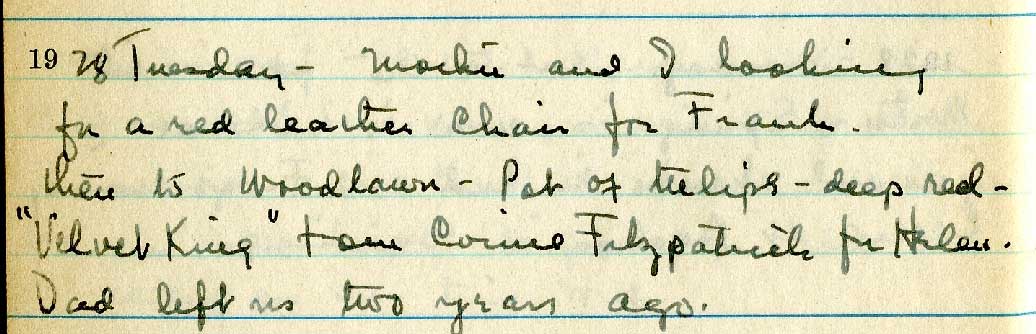 1928 Tuesday - Mochie and I looking
for a red leather Chair for Frank.
then to Woodlawn - Pot of tulips - deep red -
"Velvet King" from Corine Fitzpatrick for Helen.
Dad left us two years ago.